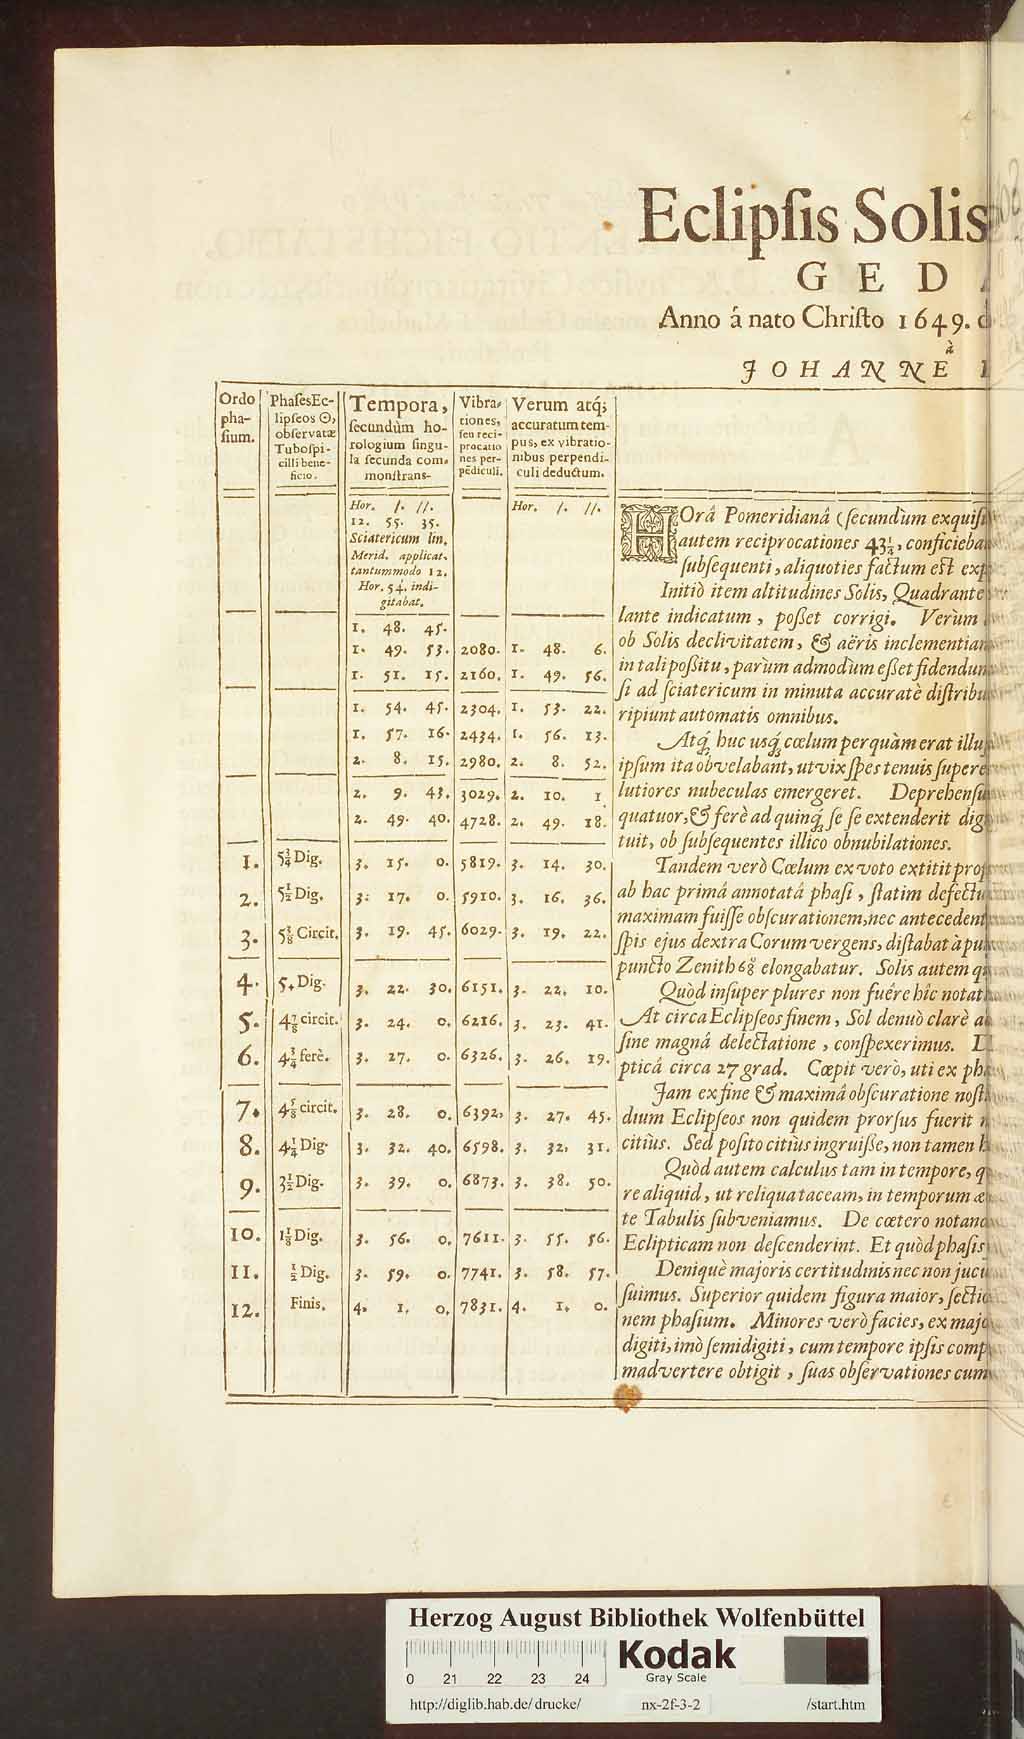 Eclipſis Solis
G E D
Anno á nato Chriſto 1649.
à
JOHANNE
Ordo
pha-
ſium.
PhaſesEc-
lipſeos ☉,
obſervatæ
Tuboſpi-
cilli bene-
ficio.
Tempora,
ſecundùm ho-
rologium ſingu-
la ſecunda com-
monſtrans-
Vibra-
tiones,
ſeu reci-
procatio
nes per-
pēdiculi.
Verum atq́;
accuratum tem-
pus, ex vibratio-
nibus perpendi-
culi deductum.
Hor. /. //.
12. 55. 35.
Sciatericum lin.
Merid. applicat.
tantummodo 12.
Hor. 54'. indi-
gitabat.
Hor. /. //.
1. 48. 45.
1. 49. 53. 2080. 1. 48. 6.
1. 51. 15. 2160. 1. 49. 56.
1. 54. 45. 2304. 1. 53. 22.
1. 57. 16. 2434. 1. 56. 13.
2. 8. 15. 2980. 2. 8. 52.
2. 9. 43. 3029. 2. 10. 1
2. 49. 40. 4728. 2. 49. 18.
1. 5¾ Dig. 3. 15. 0. 5819. 3. 14. 30.
2. 5½ Dig. 3: 17. 0. 5910. 3. 16. 36.
3. 5⅜ Circit. 3. 19. 45. 6029. 3. 19. 22.
4. 5. Dig. 3. 22. 30. 6151. 3. 22. 10.
5. 4⅞ circit. 3. 24. 0. 6216. 3. 23. 41.
6. 4¾ ferè. 3. 27. 0. 6326. 3. 26. 19.
7. 4⅝ circit. 3. 28. 0. 6392, 3. 27. 45.
8. 4¼ Dig. 3. 32. 40. 6598. 3. 32, 31.
9. 3½ Dig. 3. 39. 0. 6873. 3. 38. 50.
10. 1⅛ Dig. 3. 56. 0. 7611. 3. 55. 56.
11. ½ Dig. 3. 59. 0. 7741. 3. 58. 57.
12. Finis. 4. 1. 0. 7831. 4. 1. 0.
HOrâ Pomeridianâ (ſecundùm
autem reciprocationes 43¼,
ſubſequenti, aliquoties factum eſt
Initiò item altitudines Solis, Quadrante
lante indicatum, poſſet corrigi. Verùm
ob Solis declivitatem, & aëris
in tali poſſitu, parùm admodùm eſſet
ſi ad ſciatericum in minuta accuratè
ripiunt automatis omnibus.
Atq́; huc usq́; cœlum perquàm erat
ipſum ita obvelabant, ut vix ſpes tenuis
lutiores nubeculas emergeret.
quatuor, & ferè ad quinq́; ſe ſe extenderit
tuit, ob ſubſequentes illico obnubilationes.
Tandem verò Cœlum ex voto extitit
ab hac primâ annotatâ phaſi, ſtatim
maximam fuiſſe obſcurationem, nec
ſpis ejus dextra Corum vergens, diſtabat à
puncto Zenith 68° elongabatur. Solis autem
Quòd inſuper plures non fuêre hîc
At circa Eclipſeos finem, Sol denuò clarè
ſine magnâ delectatione, conſpexerimus.
pticâ circa 27 grad. Cœpit verò, uti ex
Jam ex fine & maximâ obſcuratione
dium Eclipſeos non quidem prorſus fuerit
citiùs. Sed poſito citiùs ingruiſſe, non tamen
Quòd autem calculus tam in tempore,
re aliquid, ut reliqua taceam, in temporum
te Tabulis ſubveniamus. De cœtero
Eclipticam non deſcenderint. Et quòd phaſis
Deniquè majoris certitudinis nec non
ſuimus. Superior quidem figura maior,
nem phaſium. Minores verò facies, ex
digiti, imò ſemidigiti, cum tempore ipſis
madvertere obtigit, ſuas obſervationes cum
Herzog August Bibliothek Wolfenbüttel
0 21 22 23 24
Kodak
Gray Scale
http://diglib.hab.de/drucke/ nx-2f-3-2 /start.htm